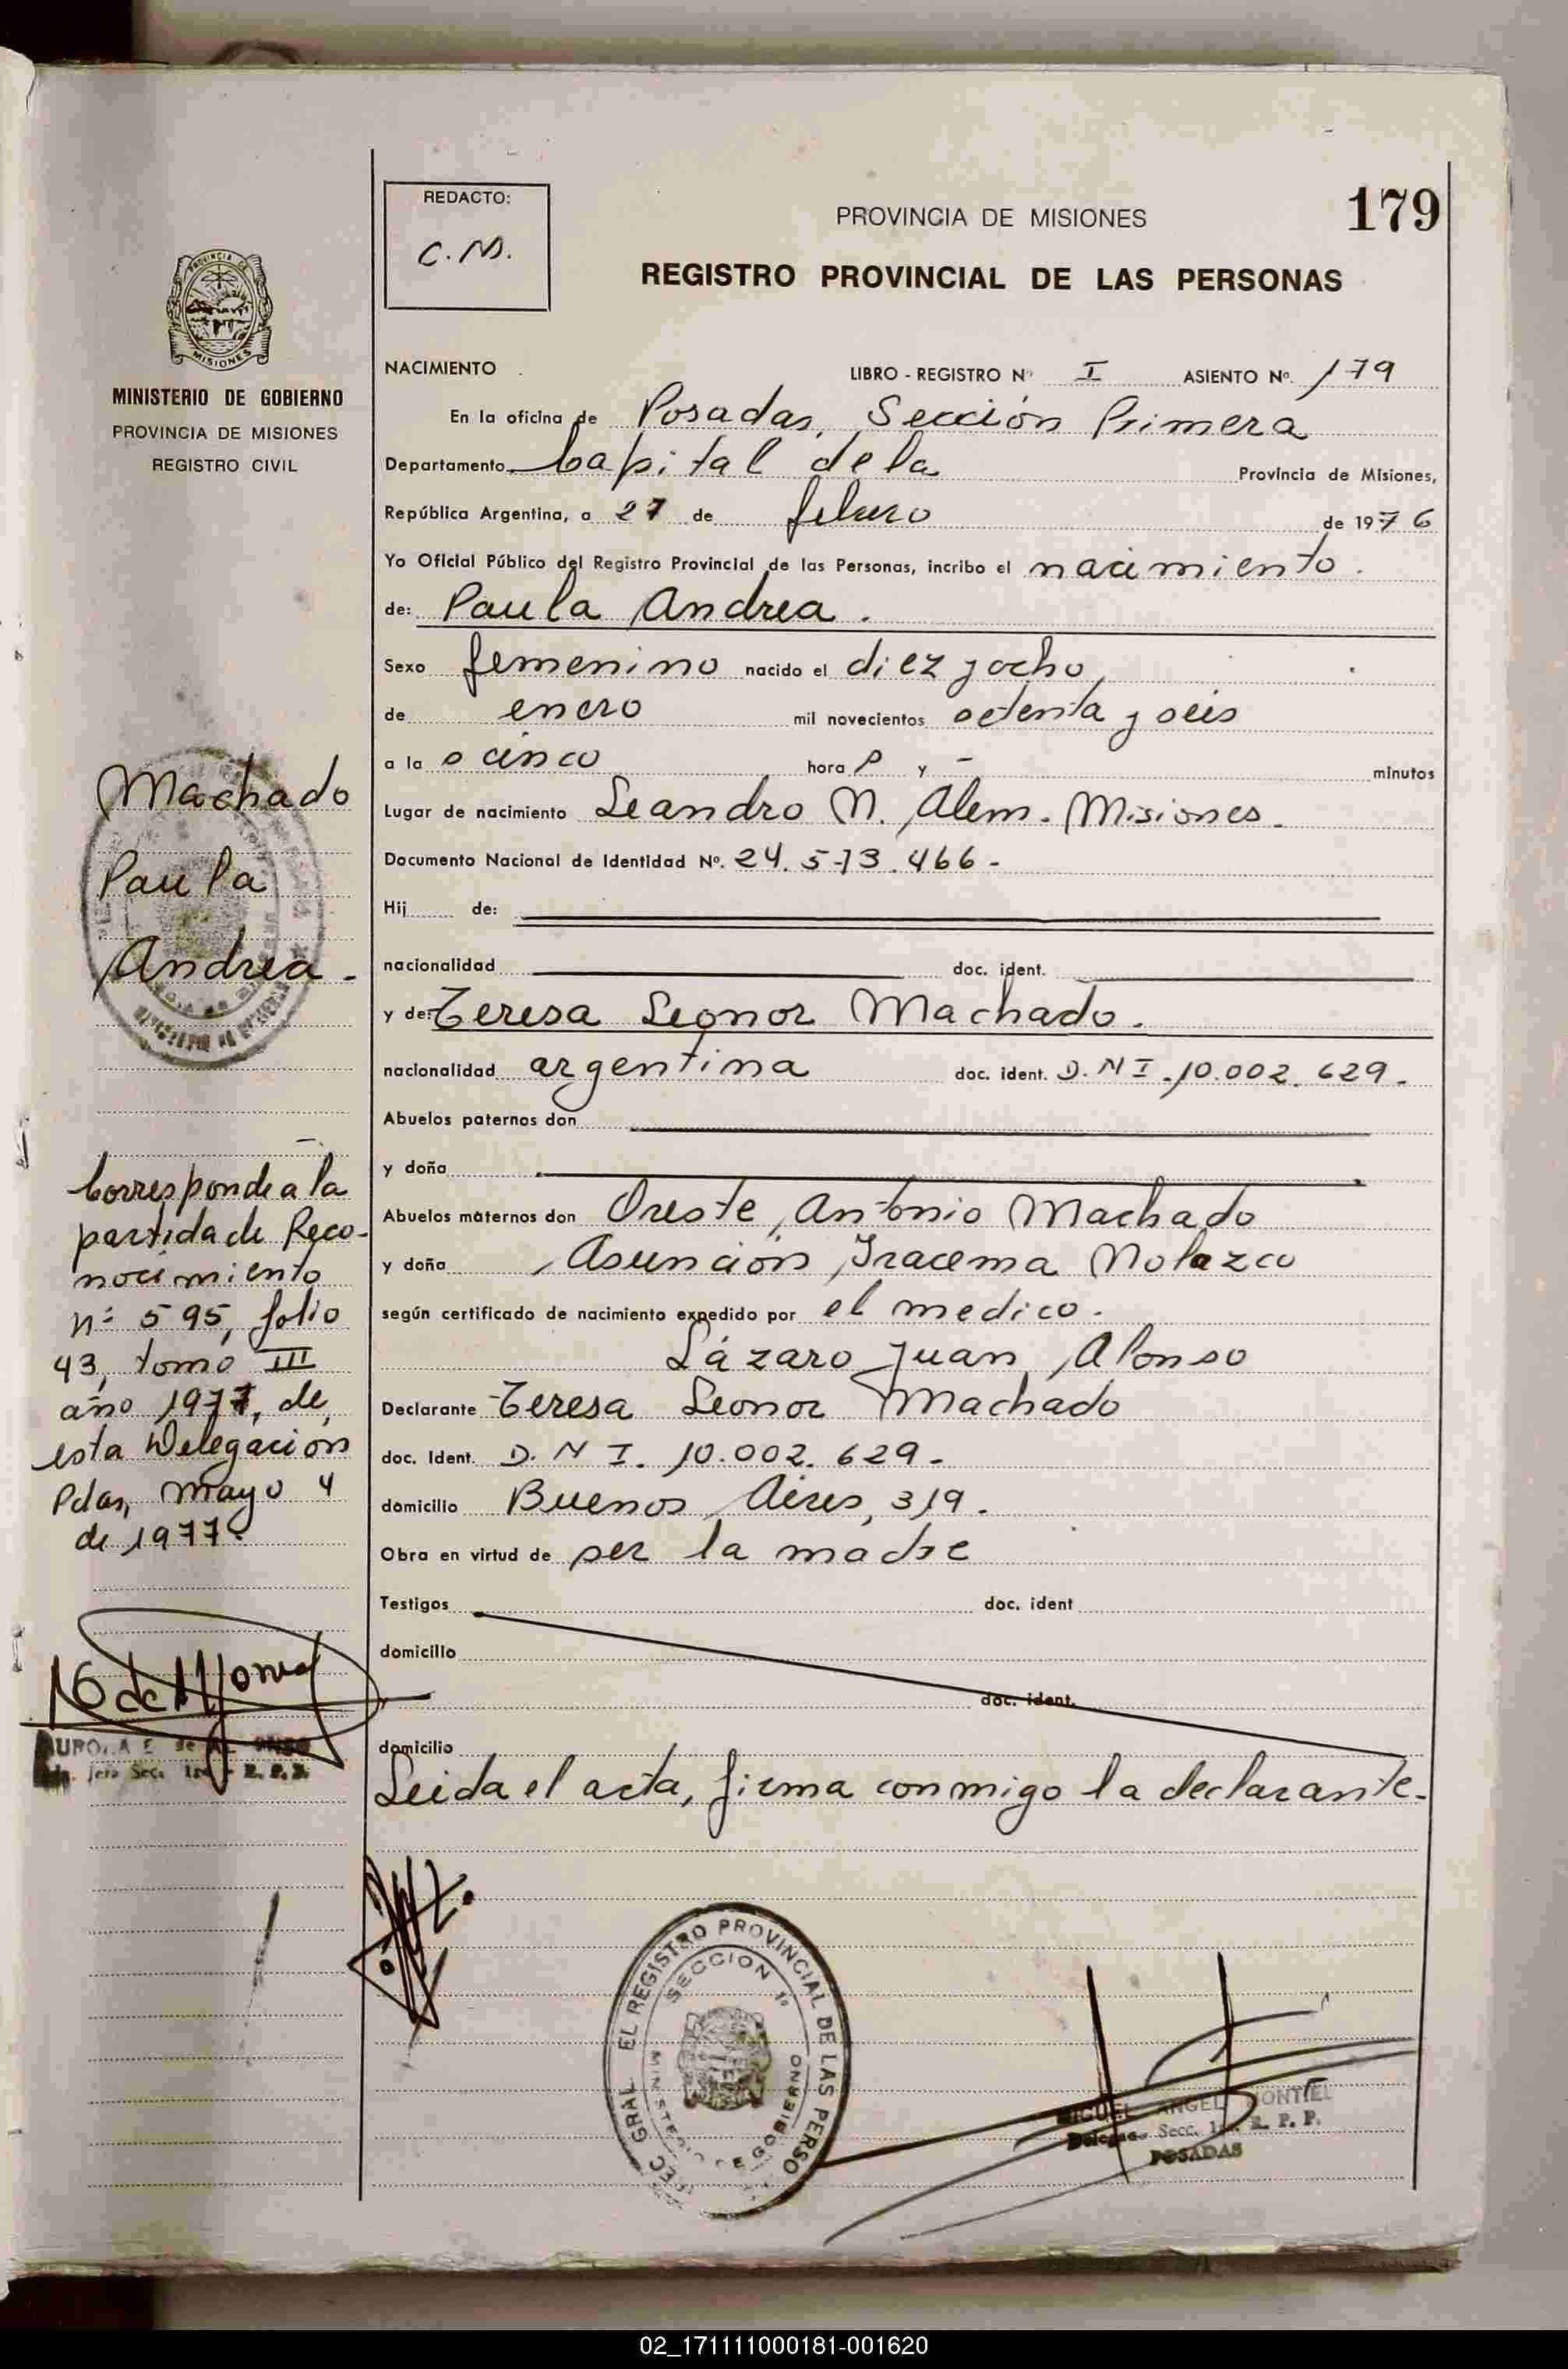 179
REDACTO:
C. M.
PROVINCIA DE MISIONES
REGISTRO PROVINCIAL DE LAS PERSONAS
PROVINCIA DE
MISIONES
MINISTERIO DE GOBIERNO
PROVINCIA DE MISIONES
REGISTRO CIVIL
NACIMIENTO LIBRO - REGISTRO Nº I ASIENTO Nº. 179
En la oficina de Posadas, Sección Primera
Departamento Capital de la Provincia de Misiones,
República Argentina, a 27 de febrero de 1976
Yo Oficial Público del Registro Provincial de las Personas, incribo el nacimiento.
de: Paula Andrea.
Sexo femenino nacido el diez y ocho,
de enero mil novecientos setenta y seis
a la s cinco hora s y - minutos
Lugar de nacimiento Leandro N. Alem. Misiones.
Documento Nacional de Identidad Nº. 24.573.466-
Hij de:
nacionalidad doc. ident.
y de: Teresa Leonor Machado.
nacionalidad argentina doc. ident. D.N I. 10.002.629.
Abuelos paternos don
y doña
Abuelos maternos don Oreste, Antonio Machado
y doña Asunción Iracema Nolazco
según certificado de nacimiento expedido por el medico.
Lázaro Juan Alonso
Declarante Teresa Leonor Machado
doc. Ident. D. N I. 10.002.629-
domicilio Buenos Aires, 319.
Obra en virtud de ser la madre
Testigos doc. ident
domicilio
doc. ident.
domicilio
Leida el acta, firma conmigo la declarante.
Machado
Paula
Andrea.
Corresponde a la
partida de Reco-
nocimiento
nº 595, folio
43, tomo III
año 1977, de
esta Delegación
Pdas, mayo 4
de 1977.
de
Sec. R. P. P.
SEC. GRAL. EL REGISTRO PROVINCIAL DE LAS PERSO
SECCION 1ª
MINISTERIO DE GOBIERNO
MIGUEL ANGEL MONTIEL
Delegado Secc. 1ra. R. P. P.
POSADAS
02_171111000181-001620